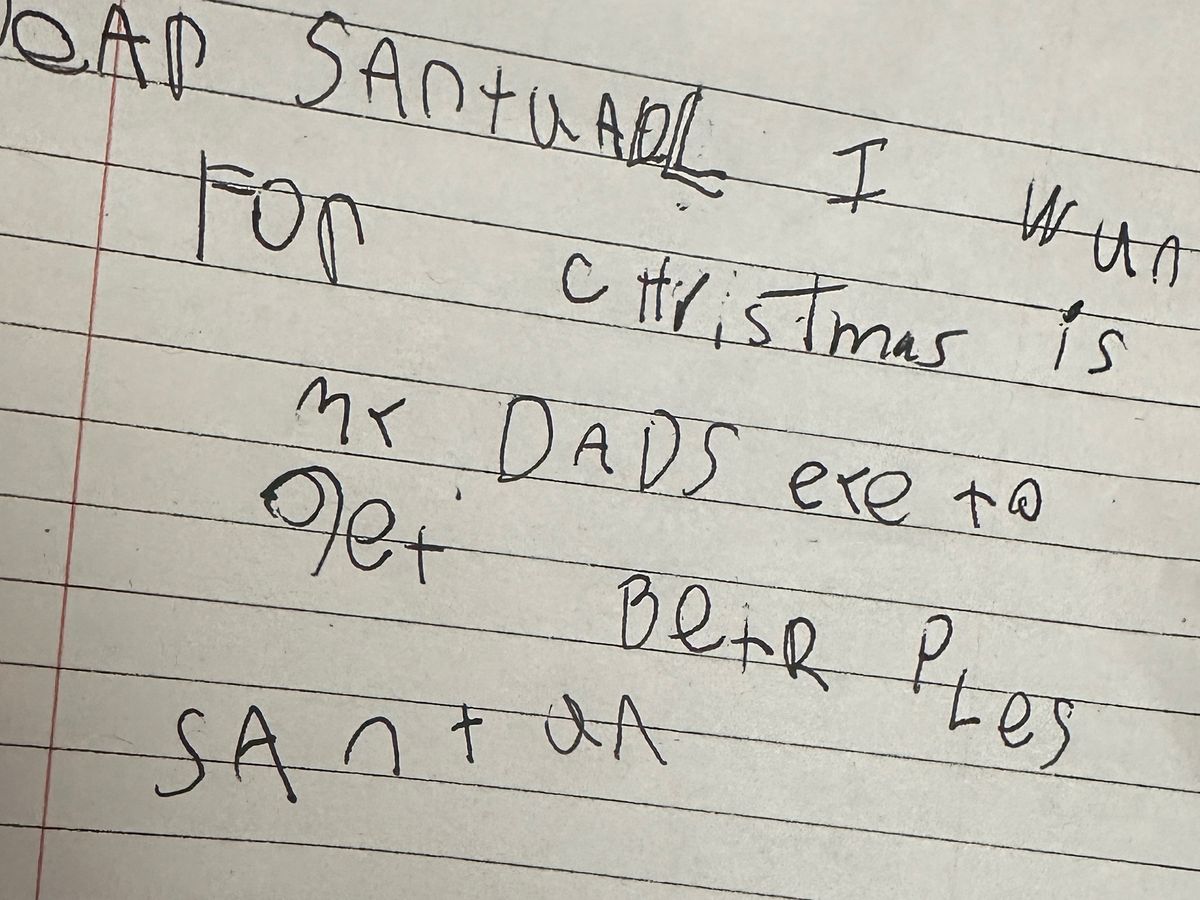 DeAr SAntuAll I wun
For cHrisTmas is
my DADS eye to
get BetR PLes
SAntuA